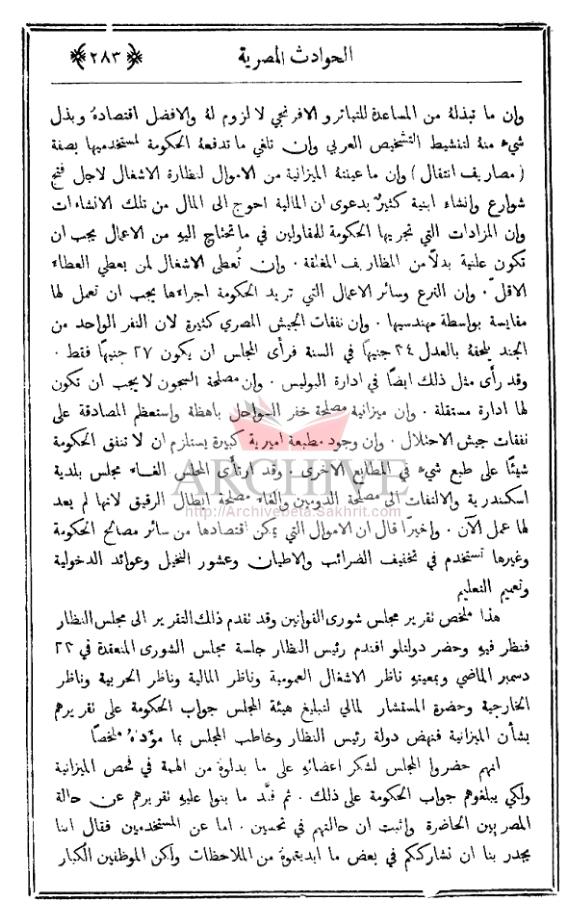 الحوادث المصرية ﴿٢٨٣﴾
وان ما تبذلهُ من المساعدة للتياترو الافرنجي لا لزوم لهُ والافضل اقتصادهُ وبذل
شيء منهُ لتنشيط التشخيص العربي وان تلغي ما تدفعهُ الحكومة لمستخدميها بصفة
(مصاريف انتقال) وان ما عينتهُ الميزانية من الاموال لنظارة الاشغال لاجل فتح
شوارع وانشاء ابنية كثيرٌ بدعوى ان المالية احوج الى المال من تلك الانشاءات
وان المزادات التي تجريها الحكومة للمقاولين في ما تحتاج اليهِ من الاعمال يجب ان
تكون علنية بدلاً من المظاريف المغلقة ٠ وان تُعطى الاشغال لمن يعطي العطاء
الاقلّ ٠ وان الترع وسائر الاعمال التي تريد الحكومة اجراءها يجب ان تعمل لها
مقايسة بواسطة مهندسيها ٠ وان نفقات الجيش المصري كثيرة لان النفر الواحد من
الجند يلحقهُ بالعدل ٣٤ جنيهاً في السنة فرأى المجلس ان يكون ٢٧ جنيهاً فقط ٠
وقد رأى مثل ذلك ايضاً في ادارة البوليس ٠ وان مصلحة السجون لا يجب ان تكون
لها ادارة مستقلة ٠ وان ميزانية مصلحة خفر السواحل باهظة واستعظم المصادقة على
نفقات جيش الاحتلال ٠ وان وجود مطبعة اميرية كبيرة يستلزم ان لا تنفق الحكومة
شيئاً على طبع شيء في المطابع الاخرى ٠ وقد ارتأى المجلس الغاء مجلس بلدية
اسكندرية والالتفات الى مصلحة الدومين والغاء مصلحة ابطال الرقيق لانها لم يعد
لها عمل الآن ٠ واخيراً قال ان الاموال التي يمكن اقتصادها من سائر مصالح الحكومة
وغيرها تستخدم في تخفيف الضرائب والاطيان وعشور النخيل وعوائد الدخولية
وتعميم التعليم
هذا ملخص تقرير مجلس شورى القوانين وقد تقدم ذلك التقرير الى مجلس النظار
فنظر فيهِ وحضر دولتلو افندم رئيس النظار جلسة مجلس الشورى المنعقدة في ٢٢
دسمبر الماضي وبمعيتهِ ناظر الاشغال العمومية وناظر المالية وناظر الحربية وناظر
الخارجية وحضرة المستشار المالي لتبليغ هيئة المجلس جواب الحكومة على تقريرهم
بشأن الميزانية فنهض دولة رئيس النظار وخاطب المجلس بما مؤداهُ ملخصاً
انهم حضروا المجلس لشكر اعضائهِ على ما بذلوهُ من الهمة في فحص الميزانية
ولكي يبلغوهم جواب الحكومة على ذلك ٠ ثم فنَّد ما بنوا عليهِ تقريرهم عن حالة
المصريين الحاضرة واثبت ان حالتهم في تحسين ٠ اما عن المستخدمين فقال اننا
يجدر بنا ان نشارككم في بعض ما ابديتموهُ من الملاحظات ولكن الموظفين الكبار
ARCHIVE
http://Archivebeta.Sakhrit.com